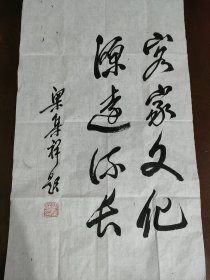 客家文化
源远流长
梁集祥题